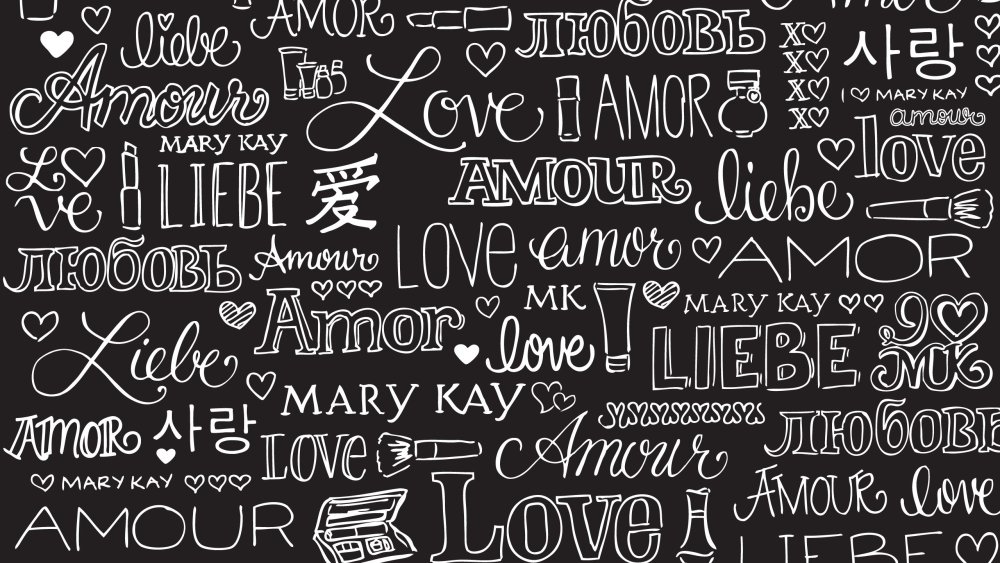 AMOR
ЛЮБОВЬ
liebe
X
X
X
X
사랑
I MARY KAY
amour
Amour
Love
AMOR
love
MARY KAY
Love
LIEBE
愛
AMOUR
liebe
ЛЮБОВЬ
Amour
LOVE
amor
AMOR
Amor
MK
MARY KAY
love
LIEBE
MK
Liebe
MARY KAY
AMOR
사랑
LOVE
Amour
ЛЮБОВЬ
MARY KAY
AMOUR
Love
AMOUR
love
LIEBE